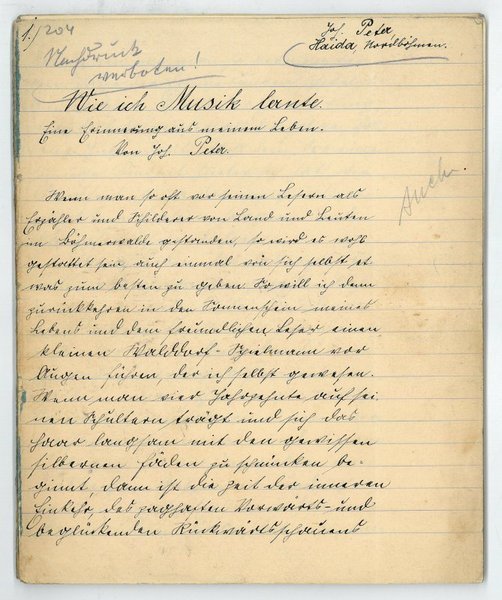 1./204
Nachdruck
verboten!
Joh. Peter
Haida, Nordböhmen.
Wie ich Musik lernte.
Eine Erinnerung aus meinem Leben.
Von Joh. Peter.
Wenn man so oft vor seinen Lesern als
Erzähler und Schilderer von Land und Leuten
im Böhmerwalde gestanden, so wird es wohl
gestattet sein, auch einmal von sich selbst et
was zum besten zu geben. So will ich denn
zurückkehren in den Sonnenschein meines
Lebens und dem freundlichen Leser einen
kleinen Walddorf-Spielmann vor
Augen führen, der ich selbst gewesen.
Wenn man vier Jahrzehnte auf sei
nen Schultern trägt und sich das
Haar langsam mit den gewissen
silbernen Fäden zu schmücken be-
ginnt, dann ist die Zeit der inneren
Einkehr, des zaghaften Vorwärts- und
beglückenden Rückwärtsschauens